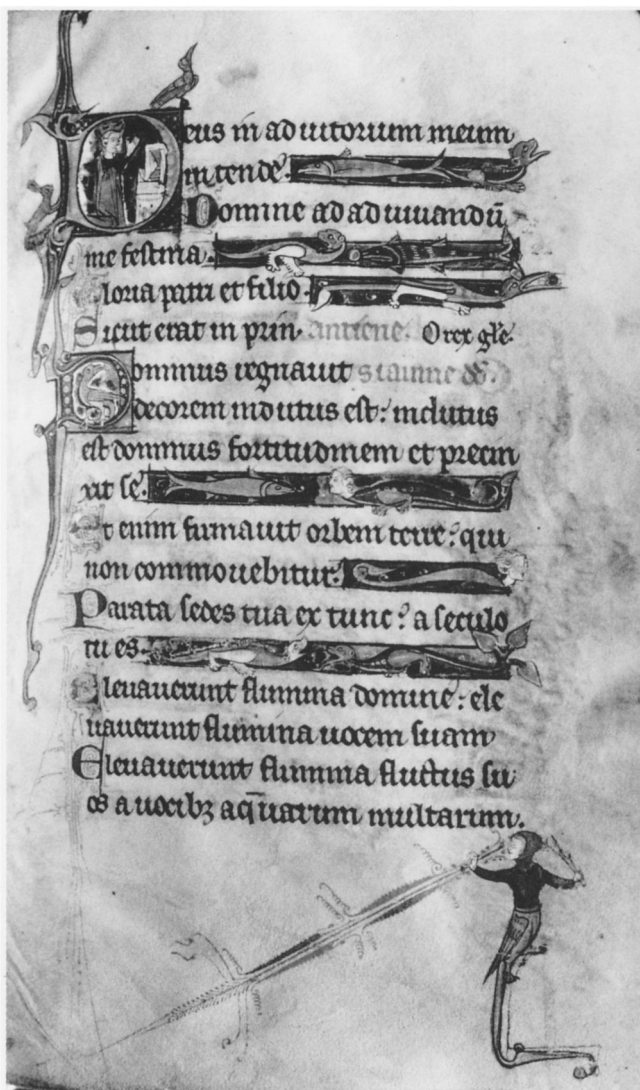 Deus in adiutorium meum
intende.
Domine ad adiuuandū
me festina.
Gloria patri et filio.
Sicut erat in prin. antiene. O rex gl'e.
Dominus regnauit
decorem indutus est: indutus
est dominus fortitudinem et precin
xit se.
Et enim firmauit orbem terre: qui
non commouebitur.
Parata sedes tua ex tunc: a seculo
tu es.
Eleuauerunt flumina domine: ele
uauerunt flumina uocem suam
Eleuauerunt flumina fluctus su
os a uocibꝫ aq̄uarum multarum.